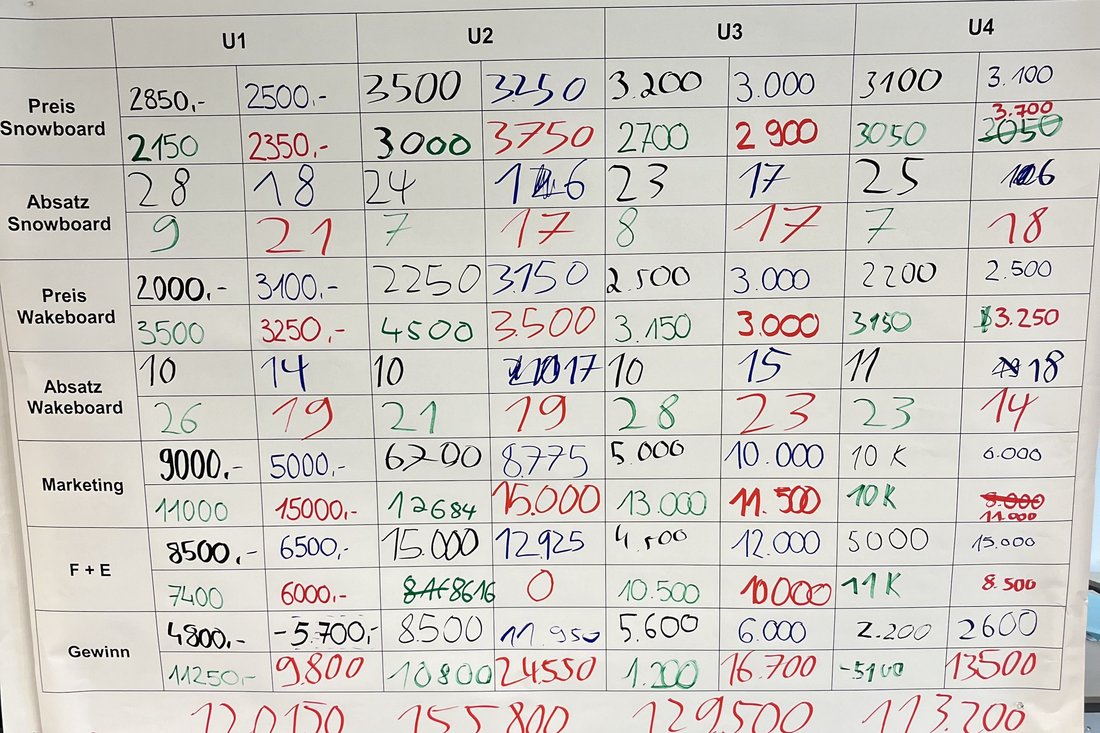 U1 U2 U3 U4
Preis Snowboard
2850,- 2500.- 3500 3250 3.200 3.000 3100 3.100
2150 2350,- 3000 3750 2700 2 900 3050 3.700
Absatz Snowboard
28 18 24 16 23 17 25 16
9 21 7 17 8 17 7 18
Preis Wakeboard
2000.- 3100.- 2250 3.150 2.500 3.000 2200 2.500
3500 3250,- 4500 3.500 3.150 3.000 3150 3.250
Absatz Wakeboard
10 14 10 17 10 15 11 18
26 19 21 19 28 23 23 14
Marketing
9000.- 5000,- 6200 8.775 5.000 10.000 10 K 6.000
11000 15000,- 12684 15.000 13.000 11.500 10K 11.000
F + E
8500,- 6500,- 15.000 12.925 4.500 12.000 5000 15.000
7400 6000.- 8616 0 10.500 10000 11 K 8.500
Gewinn
4800,- -5.700,- 8.500 11.950 5.600 6.000 2.200 2600
11250,- 9.800 10800 24550 1.200 16.700 -5100 13500
120150 155800 129.500 113.200